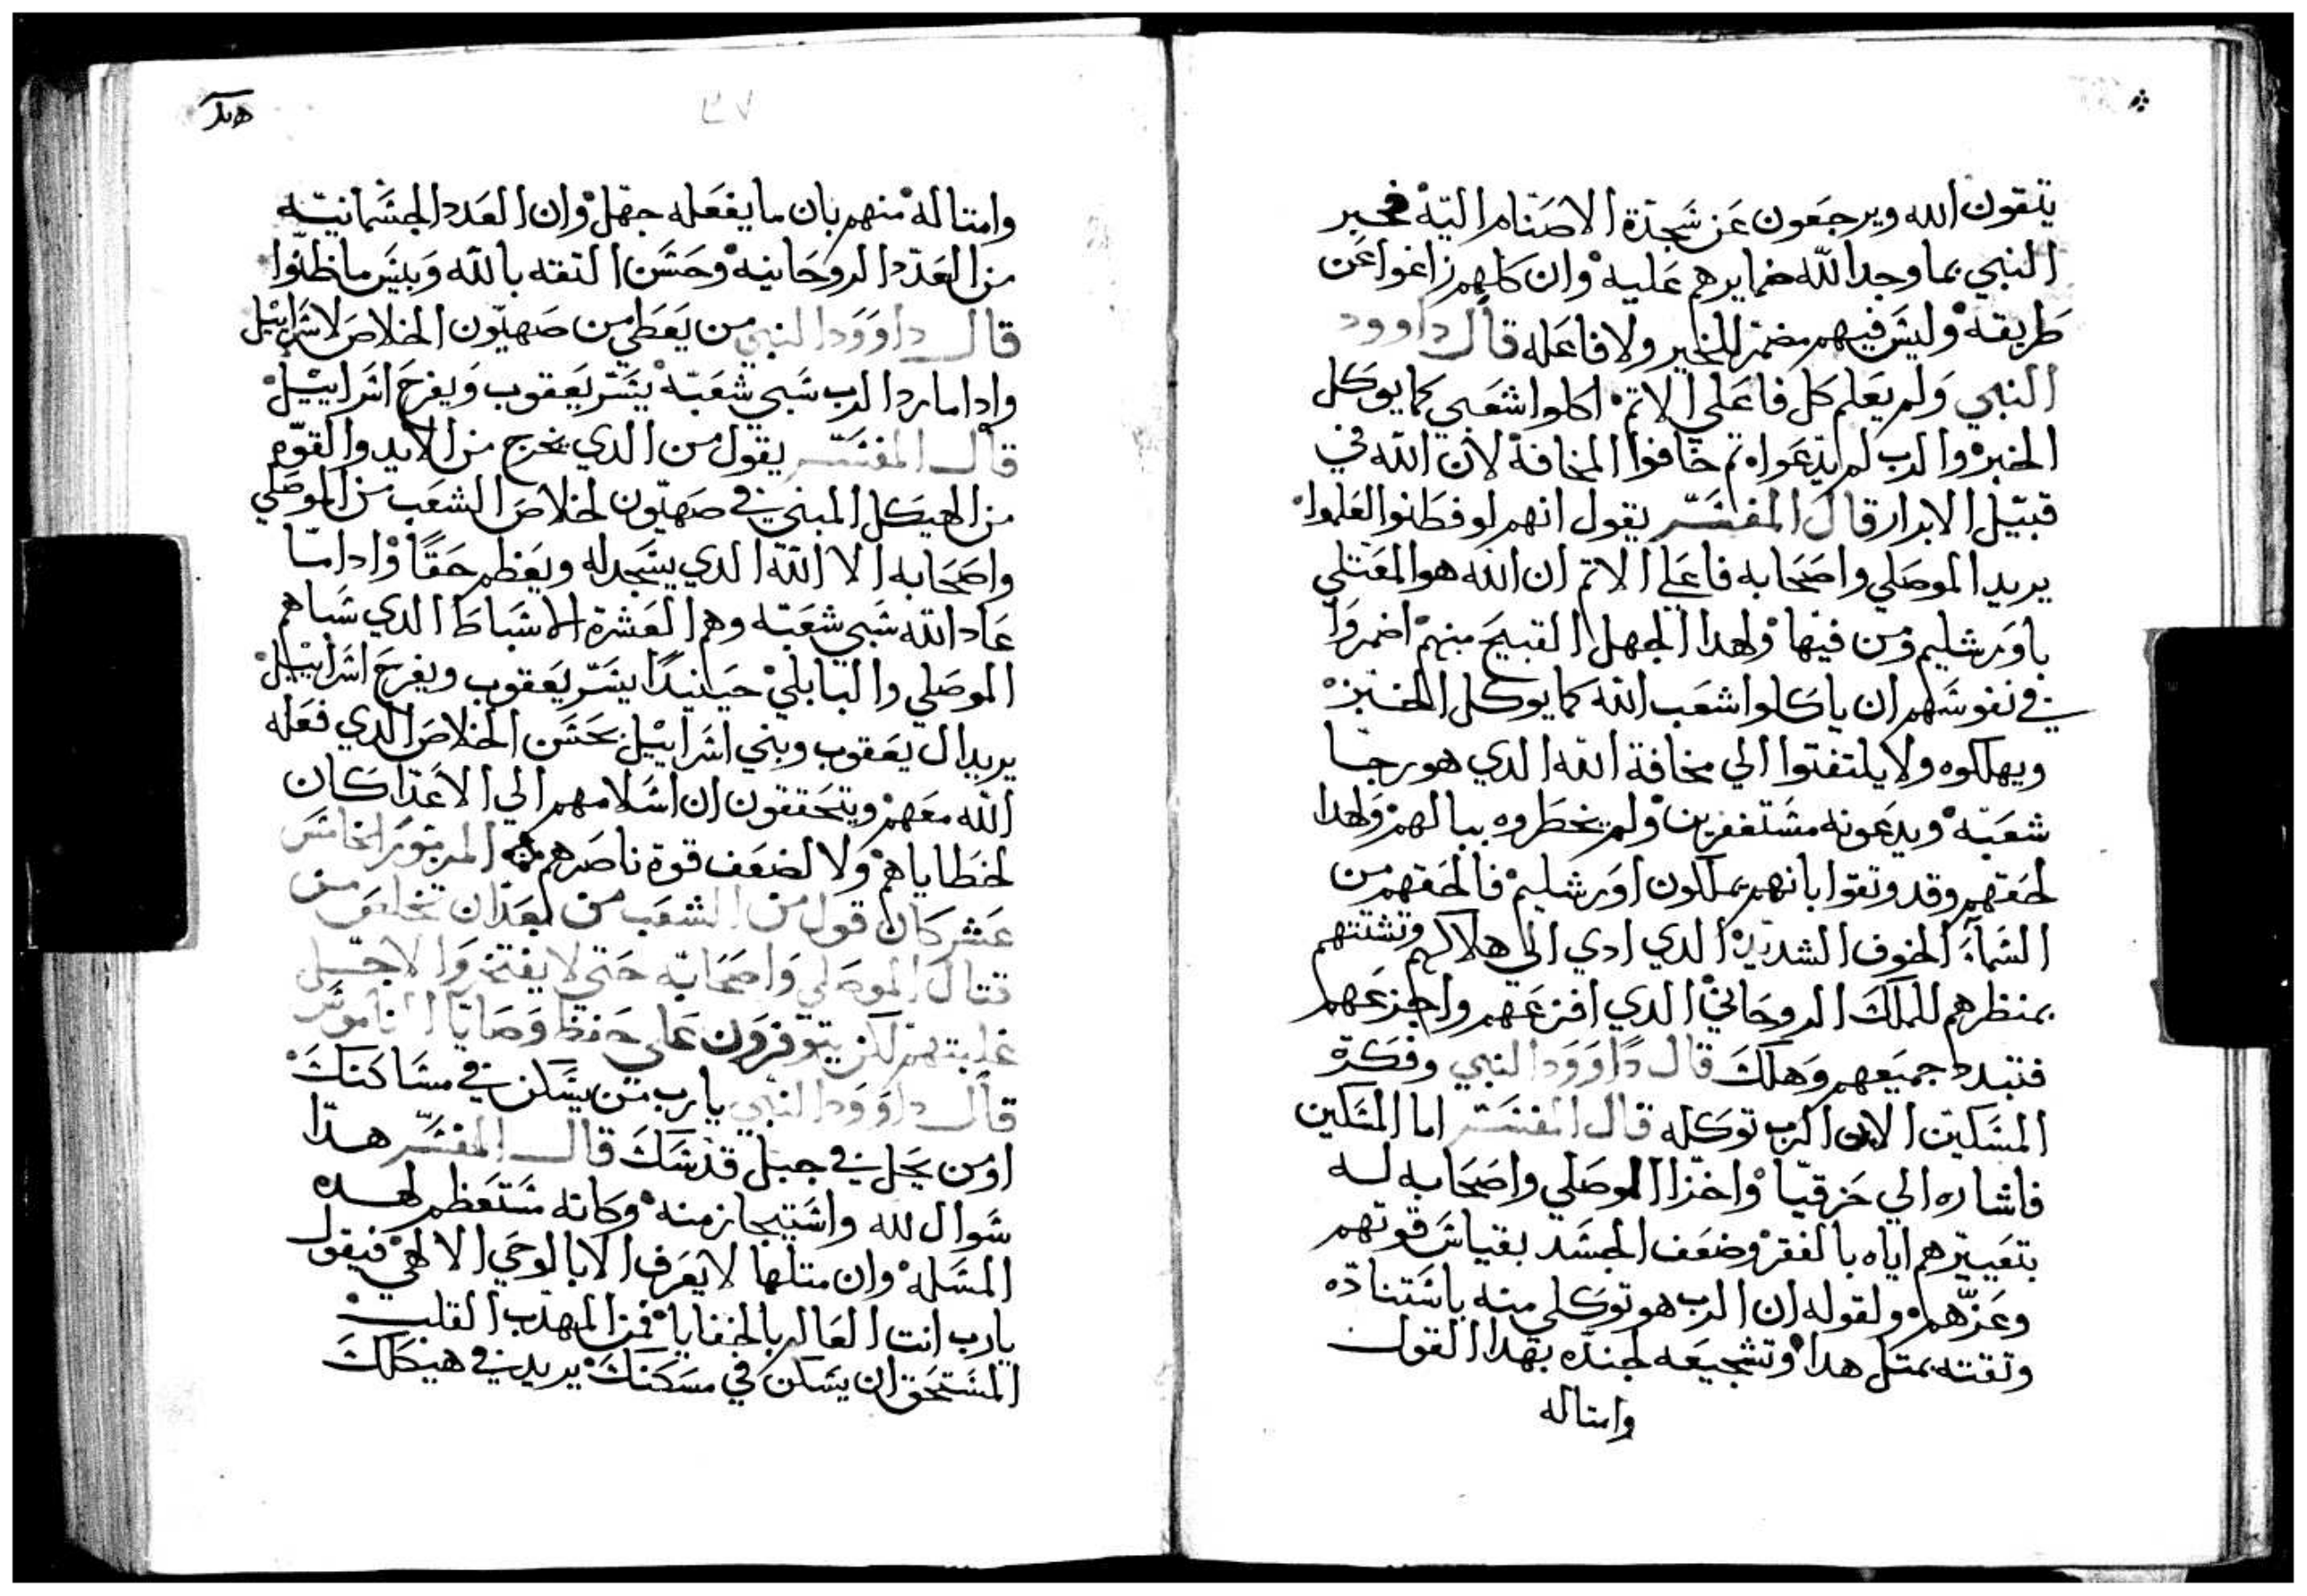 يتقون الله ويرجعون عن سجدة الاصنام اليه فخبر
النبي بما وجد الله ضمايرهم عليه وان كلهم زاغوا عن
طريقه وليس فيهم مضمر للخير ولا فاعله قال داوود
النبي ولم يعلم كل فاعلي الاتم اكلوا شعبي كما يوكل
الخبز والرب لم يدعوا تم خافوا المخافة لان الله في
قبيل الابرار قال المفسر يقول انهم لو فطنوا لعلموا
يريد الموصلي واصحابه فاعلي الاتم ان الله هو المعتلي
باورشليم ومن فيها ولهدا الجهل القبيح منهم اضمروا
في نفوسهم ان ياكلوا شعب الله كما يوكل الخبز
ويهلكوه ولا يلتفتوا الي مخافة الله الدي هو رجا
شعبه ويدعونه مستغفرين ولم يخطروه ببالهم ولهدا
لحقهم وقد وتقوا بانهم يملكون اورشليم فالحقهم من
السمآء الخوف الشديد الدي ادي الي هلاكهم وتشتتهم
بمنظرهم للملك الروحاني الدي افزعهم واجزعهم
فتبدد جميعهم وهلك قال داوود النبي وفكرة
المسكين الان الرب توكله قال المفسر اما المسكين
فاشاره الي حزقيا واخزا الموصلي واصحابه له
بتعييرهم اياه بالفقر وضعف الجسد بقياس قوتهم
وعزهم ولقوله ان الرب هو توكلي منه باستناده
وتقته بمتل هدا وتشجيعه لجنده بهدا القول
وامتاله
وامتاله منهم بان ما يفعله جهل وان العدد الجسمانيه
من العدد الروحانيه وحسن التقه بالله وبيس ما ظنوا
قال داوود النبي من يعطي من صهيون الخلاص لاسراييل
وادا ما رد الرب سبي شعبه يسر يعقوب ويفرح اسراييل
قال المفسر يقول من الدي يخرج من الايد والقوه
من الهيكل المبني في صهيون لخلاص الشعب من الموصلي
واصحابه الا الله الدي يسجد له ويعظم حقا وادا ما
عاد الله سبي شعبه وهم العشرة الاسباط الدي سباهم
الموصلي والبابلي حينيدا يسر يعقوب ويفرح اسراييل
يريد ال يعقوب وبني اسراييل بحسن الخلاص الدي فعله
الله معهم ويتحققون ان اسلامهم الي الاعدا كان
لخطاياهم ولا لضعف قوة ناصرهم المزمور الخامس
عشر كان قول من الشعب من بعد ان تخلص من
قتال الموصلي واصحابه حتي لا يفتخروا لاجل
غلبتهم لكن يتوفرون علي حفظ وصايا الناموس
قال داوود النبي يا رب من يسكن في مساكنك
او من يحل في جبل قدسك قال المفسر هدا
سوال لله واستيجاز منه وكانه مستعظم لهده
المسله وان متلها لا يعرف الا بالوحي الالهي فيقول
يا رب انت العالم بالخفايا فمن المهدب القلب
المستحق ان يسكن في مسكنك يريد في هيكلك